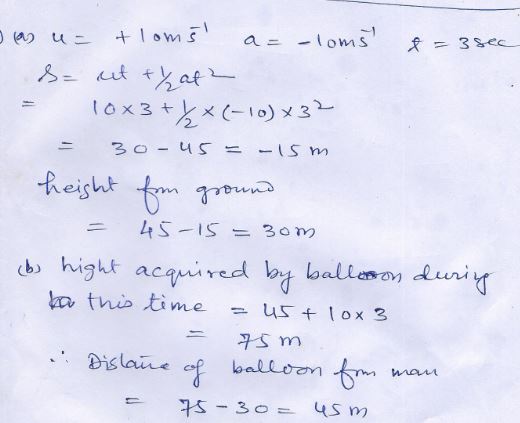 (a) u = +10ms⁻¹ a = -10ms⁻¹ t = 3sec
S = ut + ½at²
= 10×3 + ½ × (-10) × 3²
= 30-45 = -15 m
height from ground
= 45-15 = 30m
(b) hight acquired by balloon during
this time = 45 + 10×3
= 75 m
∴ Distance of balloon from man
= 75-30 = 45m